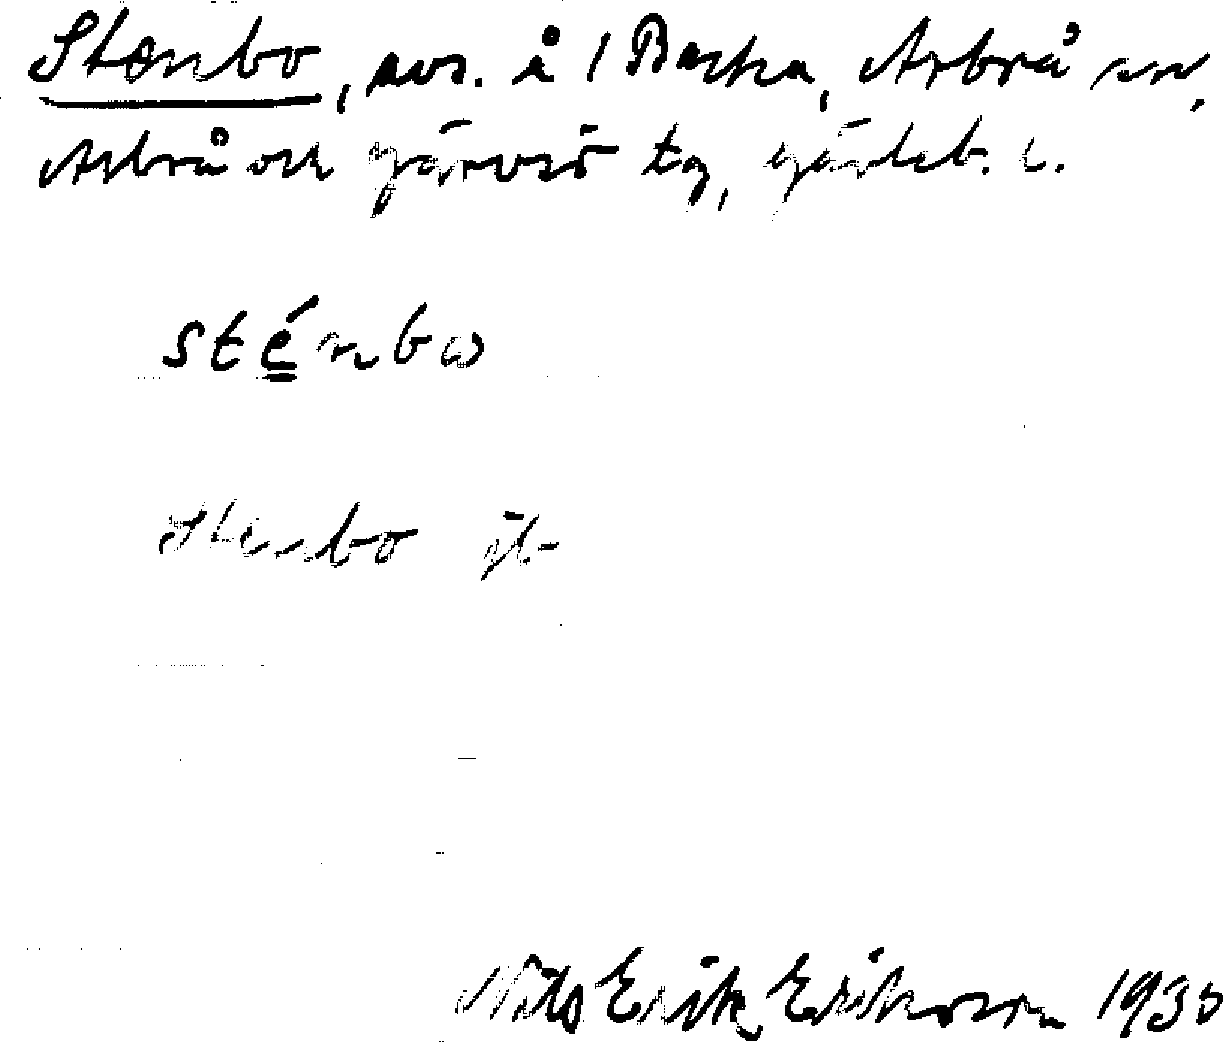 Stenbo, avs. å 1 Backa, Arbrå sn,
Arbrå och Järvsö tg, Gävleb. l.
sténbω
Stenbo jb
Nils Erik Eriksson 1930